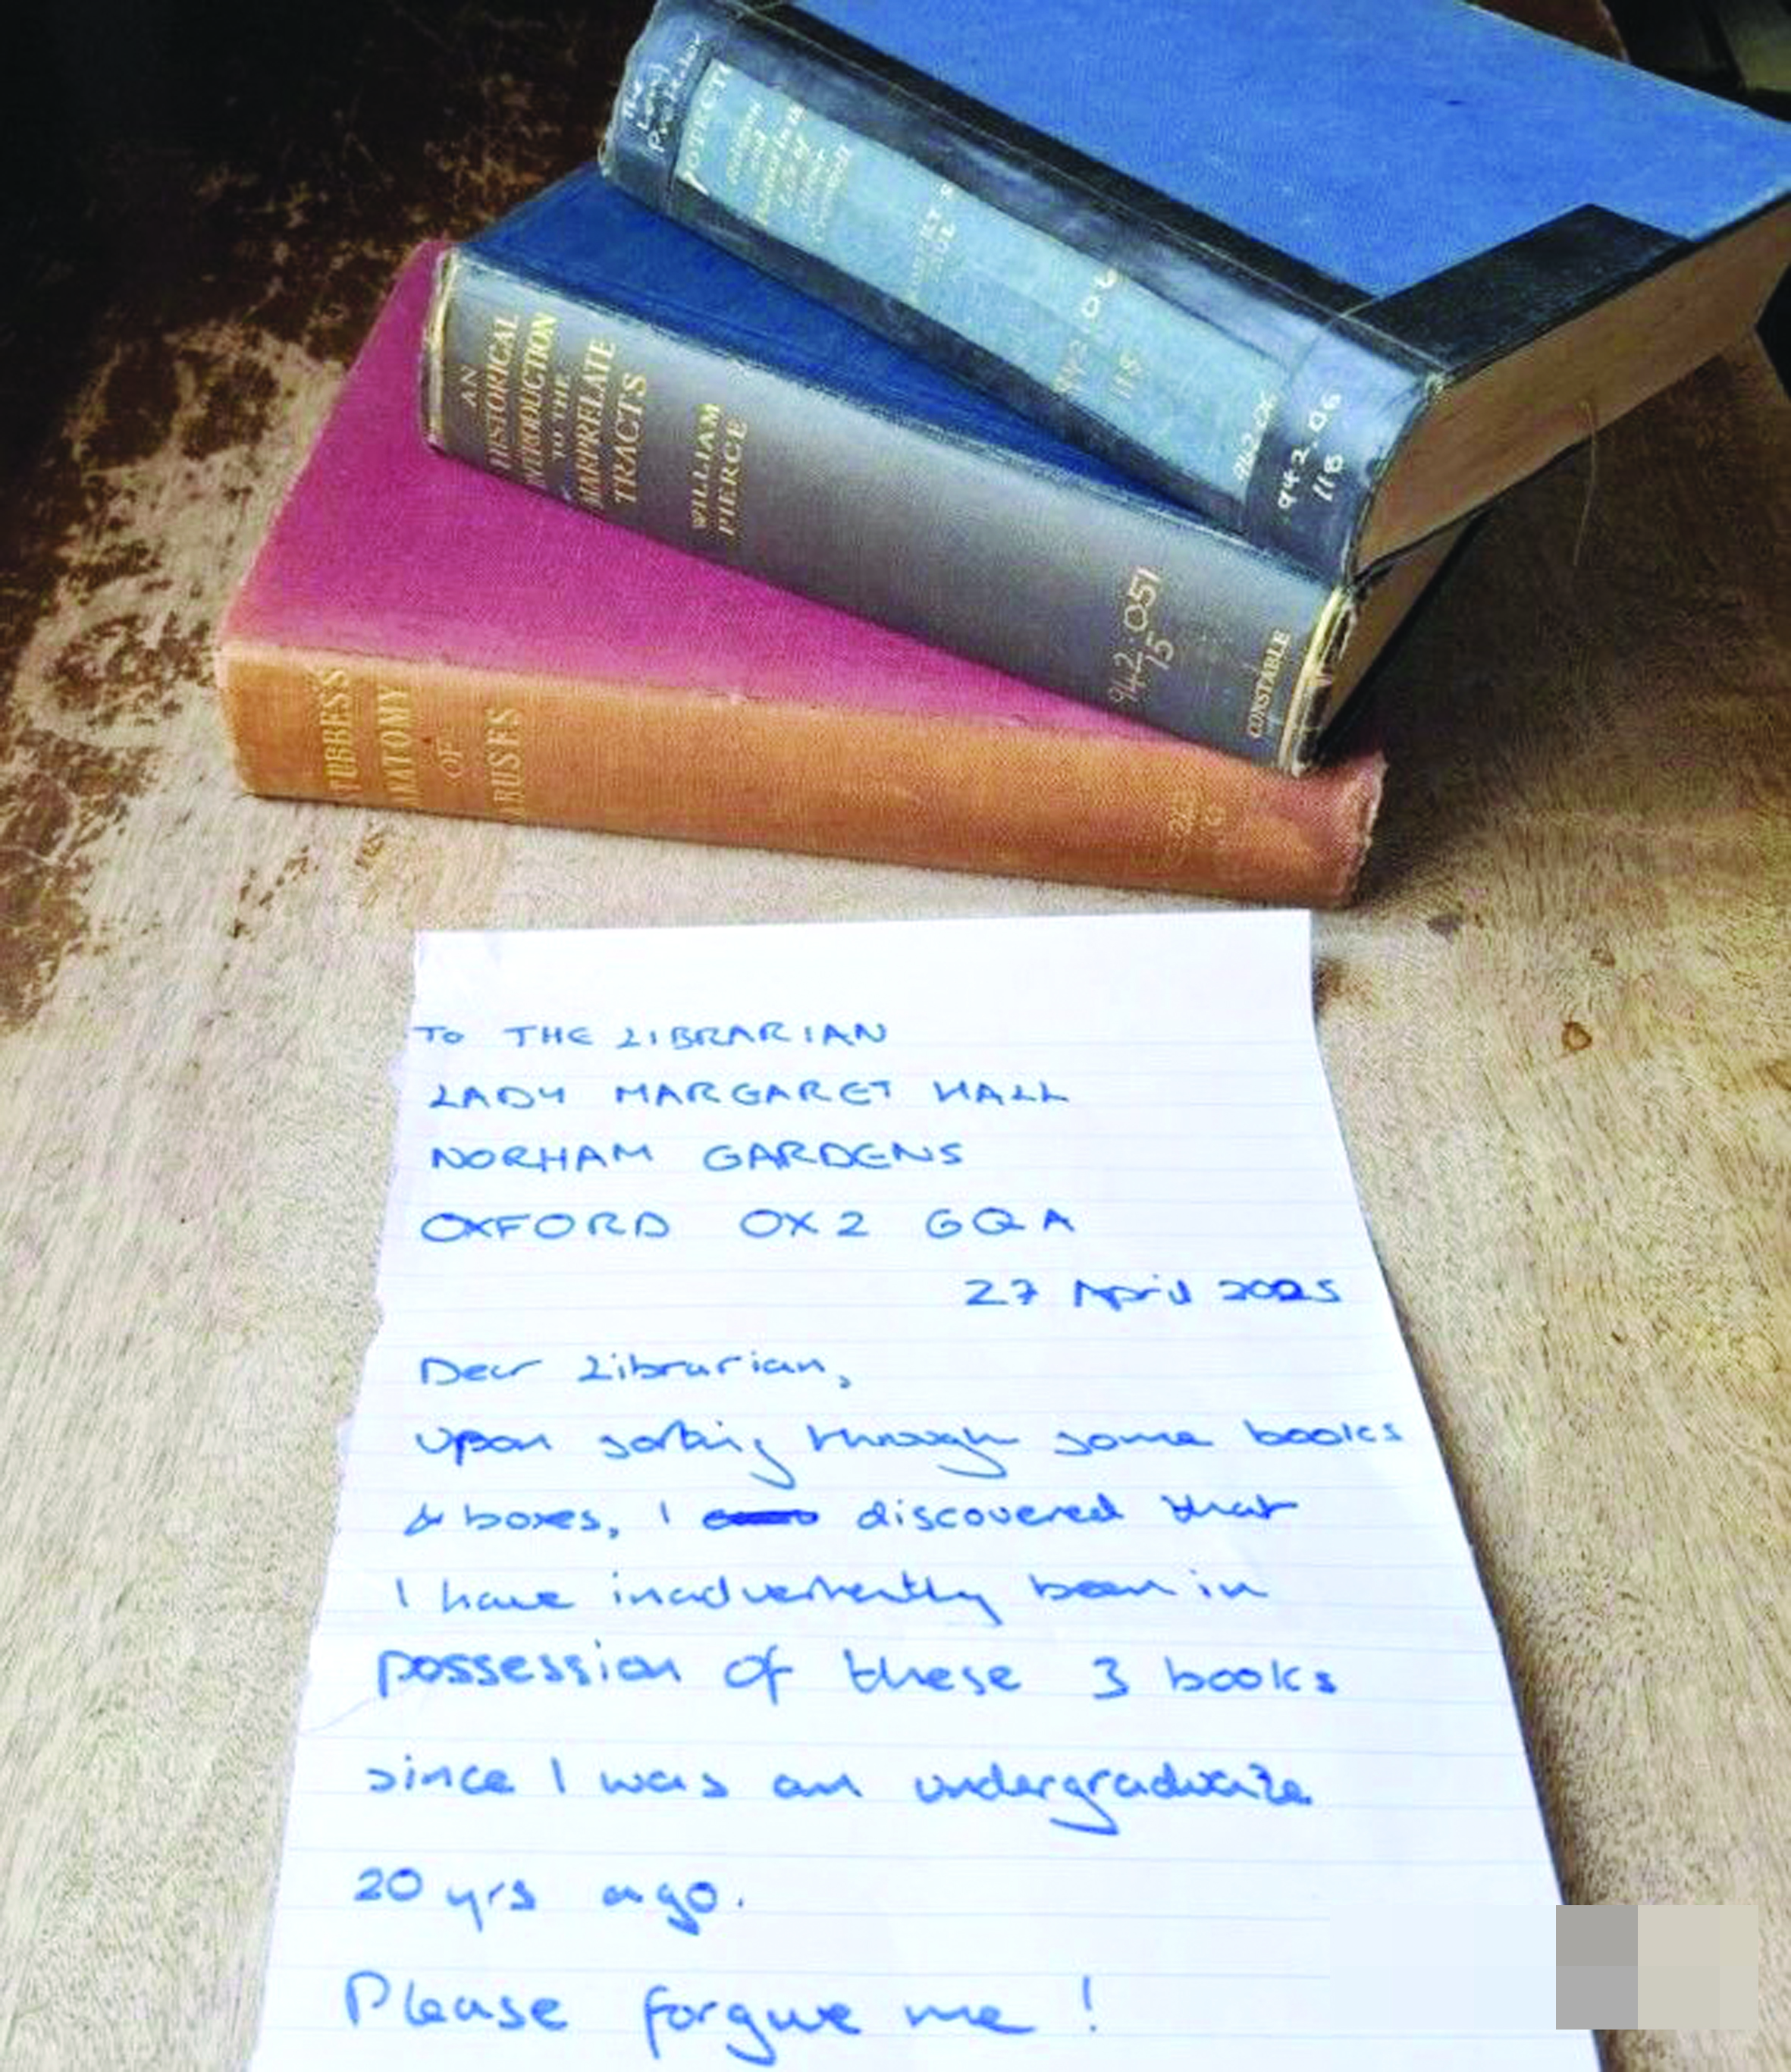 942.06
118
AN
HISTORICAL
INTRODUCTION
TO THE
MARPRELATE
TRACTS
WILLIAM
PIERCE
942.051
15
CONSTABLE
ANATOMY
OF
ABUSES
TO THE LIBRARIAN
LADY MARGARET HALL
NORHAM GARDENS
OXFORD OX2 6QA
27 April 2025
Dear Librarian,
Upon sorting through some books
& boxes, I discovered that
I have inadvertently been in
possession of these 3 books
since I was an undergraduate
20 yrs ago.
Please forgive me!